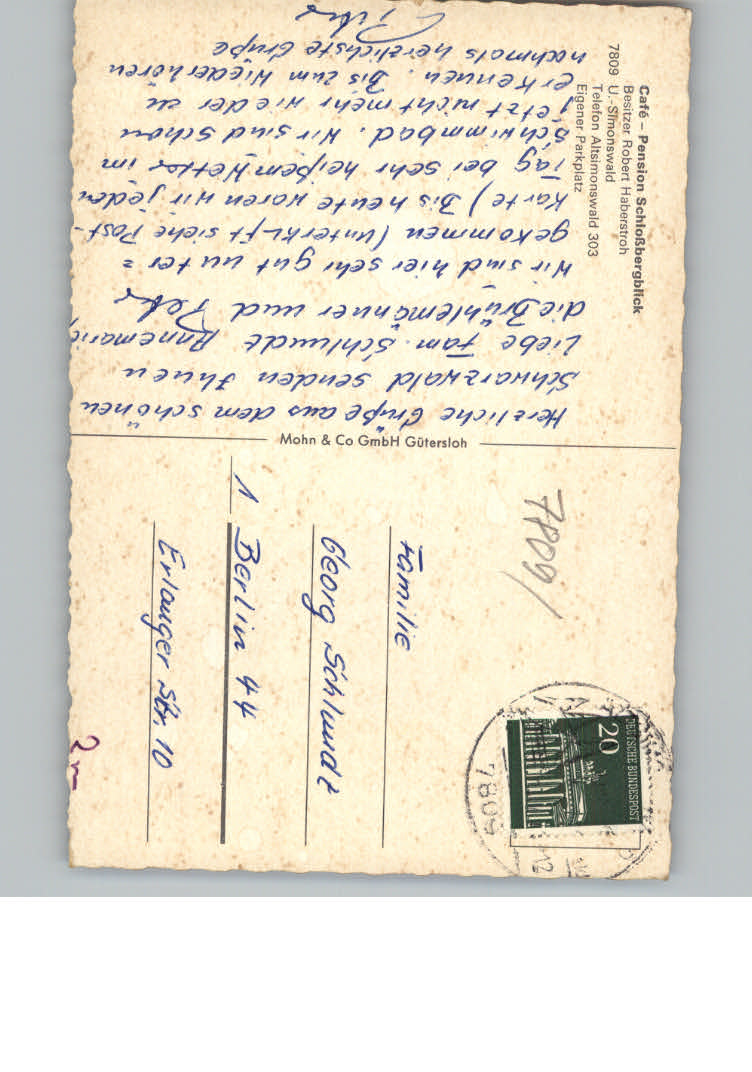 Café – Pension Schloßbergblick
Besitzer Robert Haberstroh
7809 U.-Simonswald
Telefon Altsimonswald 303
Eigener Parkplatz
Herzliche Grüße aus dem schönen
Schwarzwald senden Ihnen
Liebe Fam. Schlundt Annemarie,
die Brühlemänner und Peter
Wir sind hier sehr gut unter=
gekommen (Unterkuft siehe Post-
karte) Bis heute waren wir jeden
Tag bei sehr heißem Wetter im
Schwimmbad. Wir sind schon
jetzt nicht mehr wieder zu
erkennen. Bis zum Wiederhören
nochmals herzlichste Grüße
Mohn & Co GmbH Gütersloh
7809/
Familie
Georg Schlundt
1 Berlin 44
Erlanger Str. 10
DEUTSCHE BUNDESPOST
20
7809
12